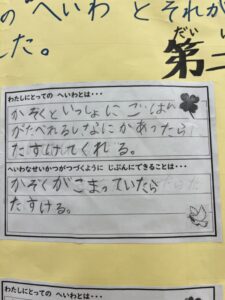 の"へいわ"とそれが
した。
だい
第二
わたしにとっての へいわとは・・・
かぞくといっしょに ごはん
がたべれるしなにかあったら
たすけてくれる。
へいわなせいかつがつづくように じぶんにできることは・・・
かぞくがこまっていたら
たすける。
わたしにとっての へいわとは・・・